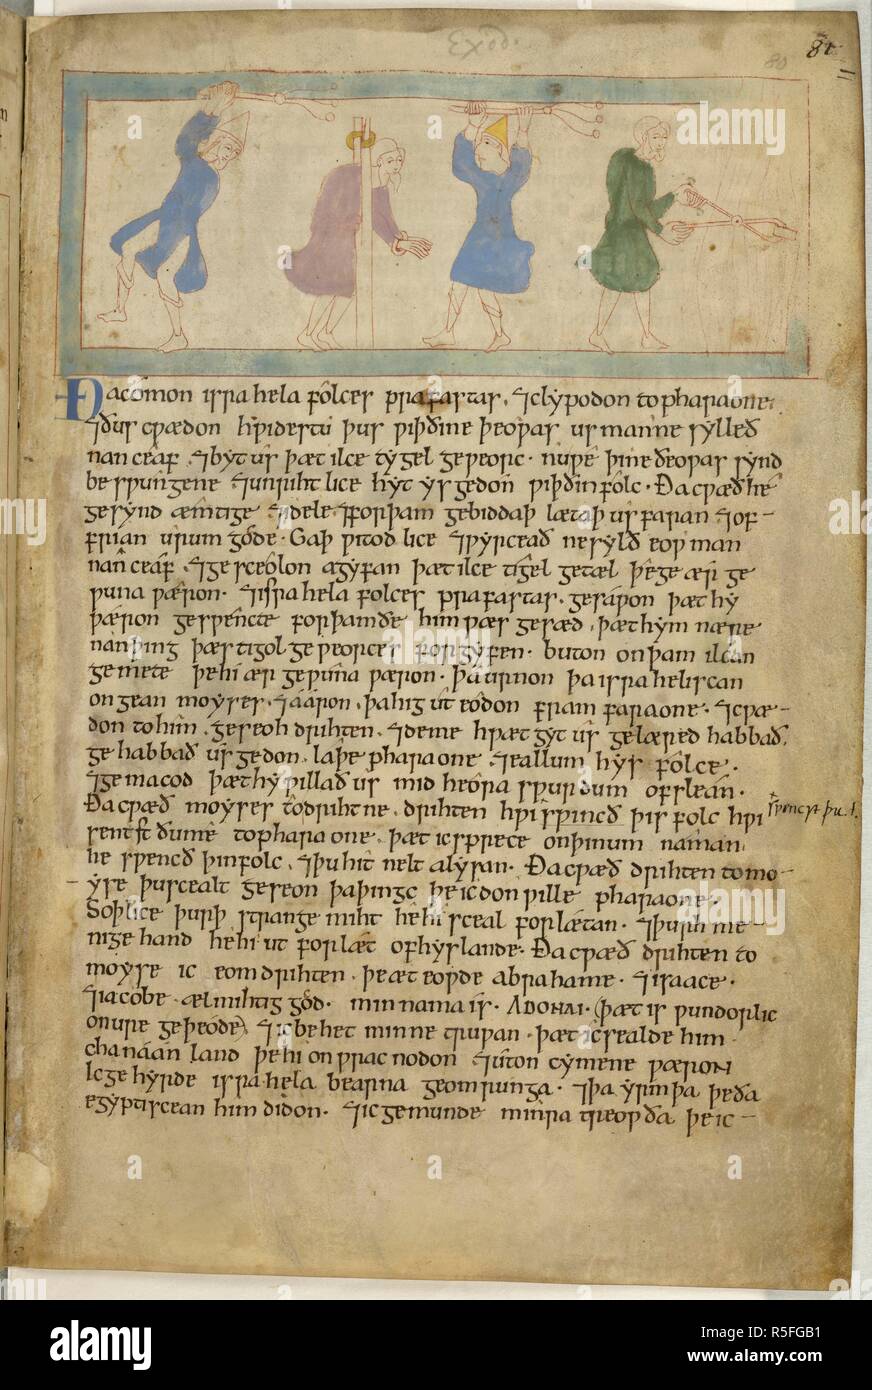 Exod.
81
80
Ða cómon isrrahela fólces prafastas. ⁊ clypodon to pharaone.
⁊ ðus cpædon hpi destu þus piþ ðine þeopas us man ne sylleð
nan ceaf. ⁊ byt us þæt ilce tygel gepeorc. nu pe þine ðeopas synd
bespungene ⁊ unriht lice hyt ys gedon piþ ðin fólc. Ða cpæð he
ge synd æmtige ⁊ idele ⁊ forþam gebiddaþ lætaþ us faran ⁊ of-
frian urum góde. Gaþ pitodlice ⁊ pyrceað ne sylð eop man
nan ceaf. ⁊ ge sceolon agyfan þæt ilce tigel getæl þe ge ær ge
puna pæron. ⁊ isrrahela folces prafastas. gesapon þæt hy
pæron gespencte forþam ðe him pæs gesæd. þæt hym nære
nan þing þæs tigolgepeorces forgyfen. buton on þam ilcan
gemete þe hi ær gepuna pæron. þa urnon þa isrrahelis can
ongean moyses. ⁊ aáron. þa hig út eódon fram faraone. ⁊ cpæ-
don to him. geseoh drihten. ⁊ deme hpæt gyt us gelæred habbað.
ge habbað us gedon. laþe pharaone ⁊ eallum hys fólce.
⁊ gemacod þæt hy pillað us mid heóra spurdum ofslean.
Ða cpæð moyses to drihtne. drihten hpi spincð þis folc hpi
sentst ðu me to pharaone. þæt ic sprece on þinum naman.
he spencð þin folc. ⁊ þu hit nelt alysan. Ða cpæð drihten to mo-
yse þu scealt geseon þa þingc þe ic don pille pharaone.
Soþlice þurh strange miht he hi sceal forlætan. ⁊ þurh me-
nige hand he hi ut forlæt of hys lande. Ða cpæð drihten to
moyse ic eom drihten. þe æteopde abrahame. ⁊ isaace.
⁊ iacobe. ælmihtig gód. min nama is. ADONAI. (þæt is pundorlic
on ure geþeóde) ⁊ ic behet minne trupan. þæt ic sealde him
chanáan land þe hi on præcnodon ⁊ úton cymene pæron
Ic gehyrde isrrahela bearna geomrunga. ⁊ þa yrmþa þe ða
egyptiscean him didon. ⁊ ic gemunde minra treopða þe ic-
alamy
Image ID: R5FGB1
www.alamy.com